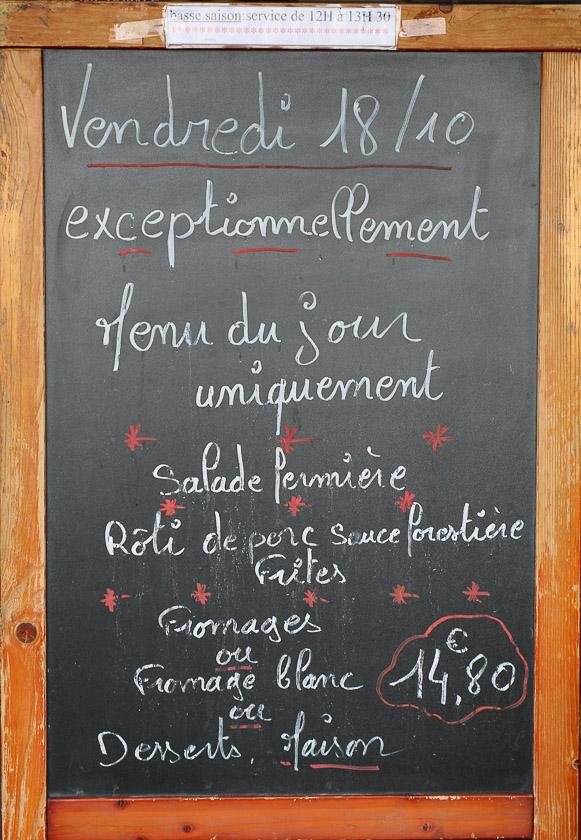 basse saison:service de 12H à 13H 30
Vendredi 18/10
exceptionnellement
Menu du jour
uniquement
Salade fermière
Rôti de porc sauce forestière
Frites
Fromages
ou
Fromage blanc
ou
Desserts, Maison
€
14,80